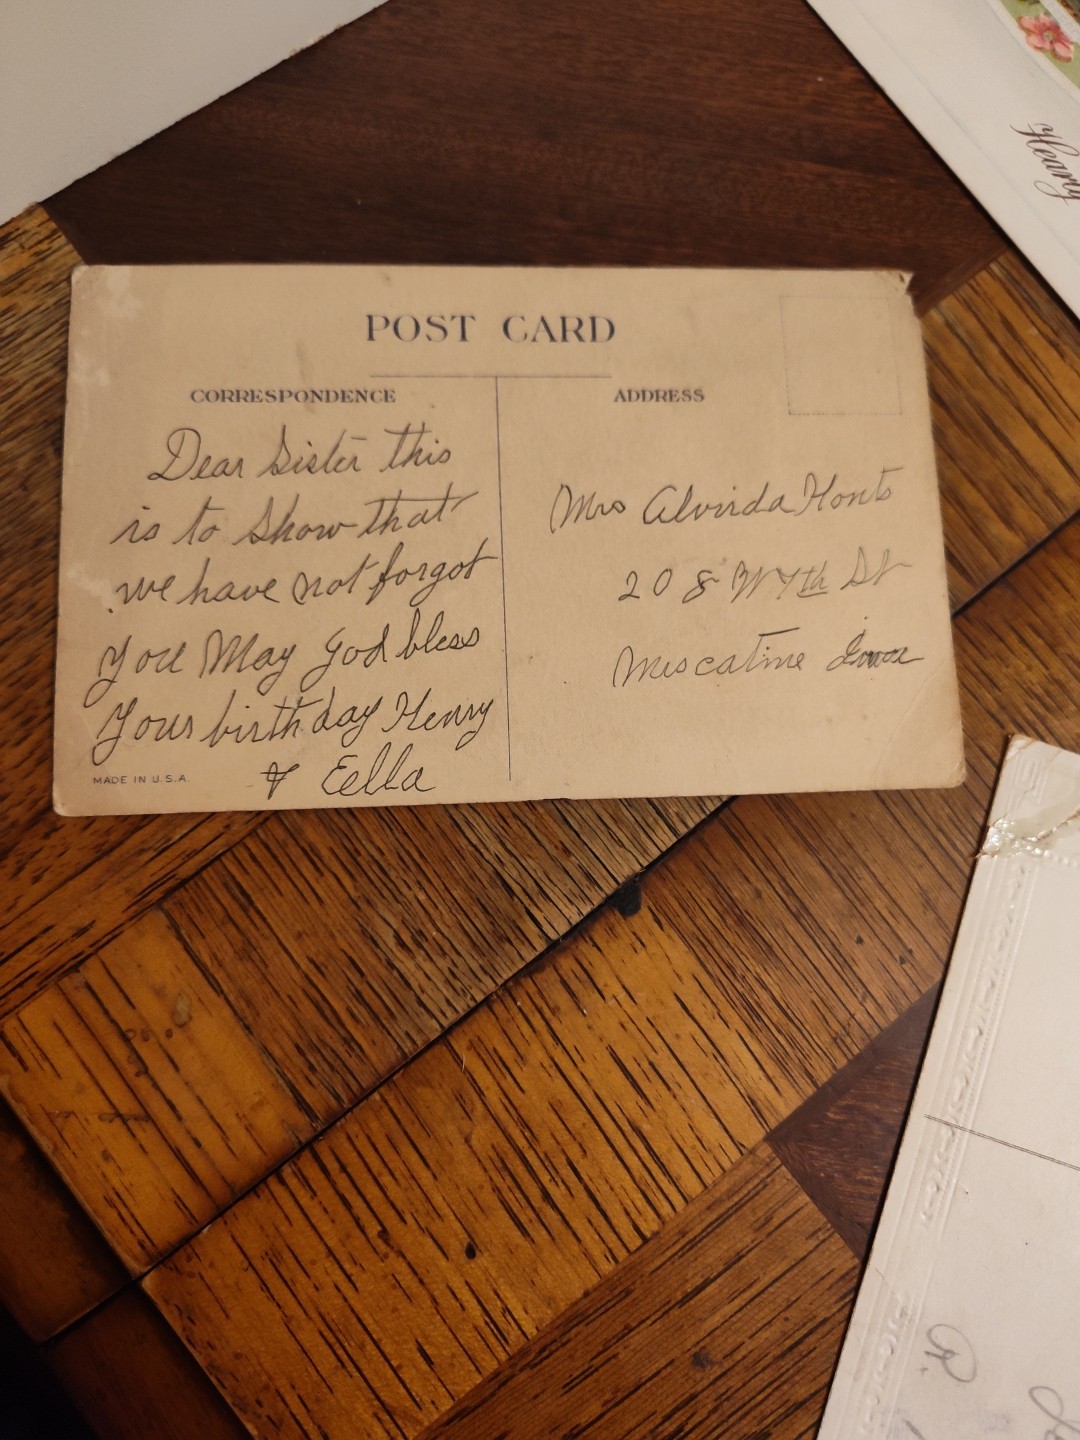 POST CARD
CORRESPONDENCE
ADDRESS
Dear Sister this
is to show that
we have not forgot
you May God bless
Your birthday Henry
& Eella
MADE IN U.S.A.
Mrs Alvirda Honts
208 W 7th St
Muscatine Iowa
Hearty